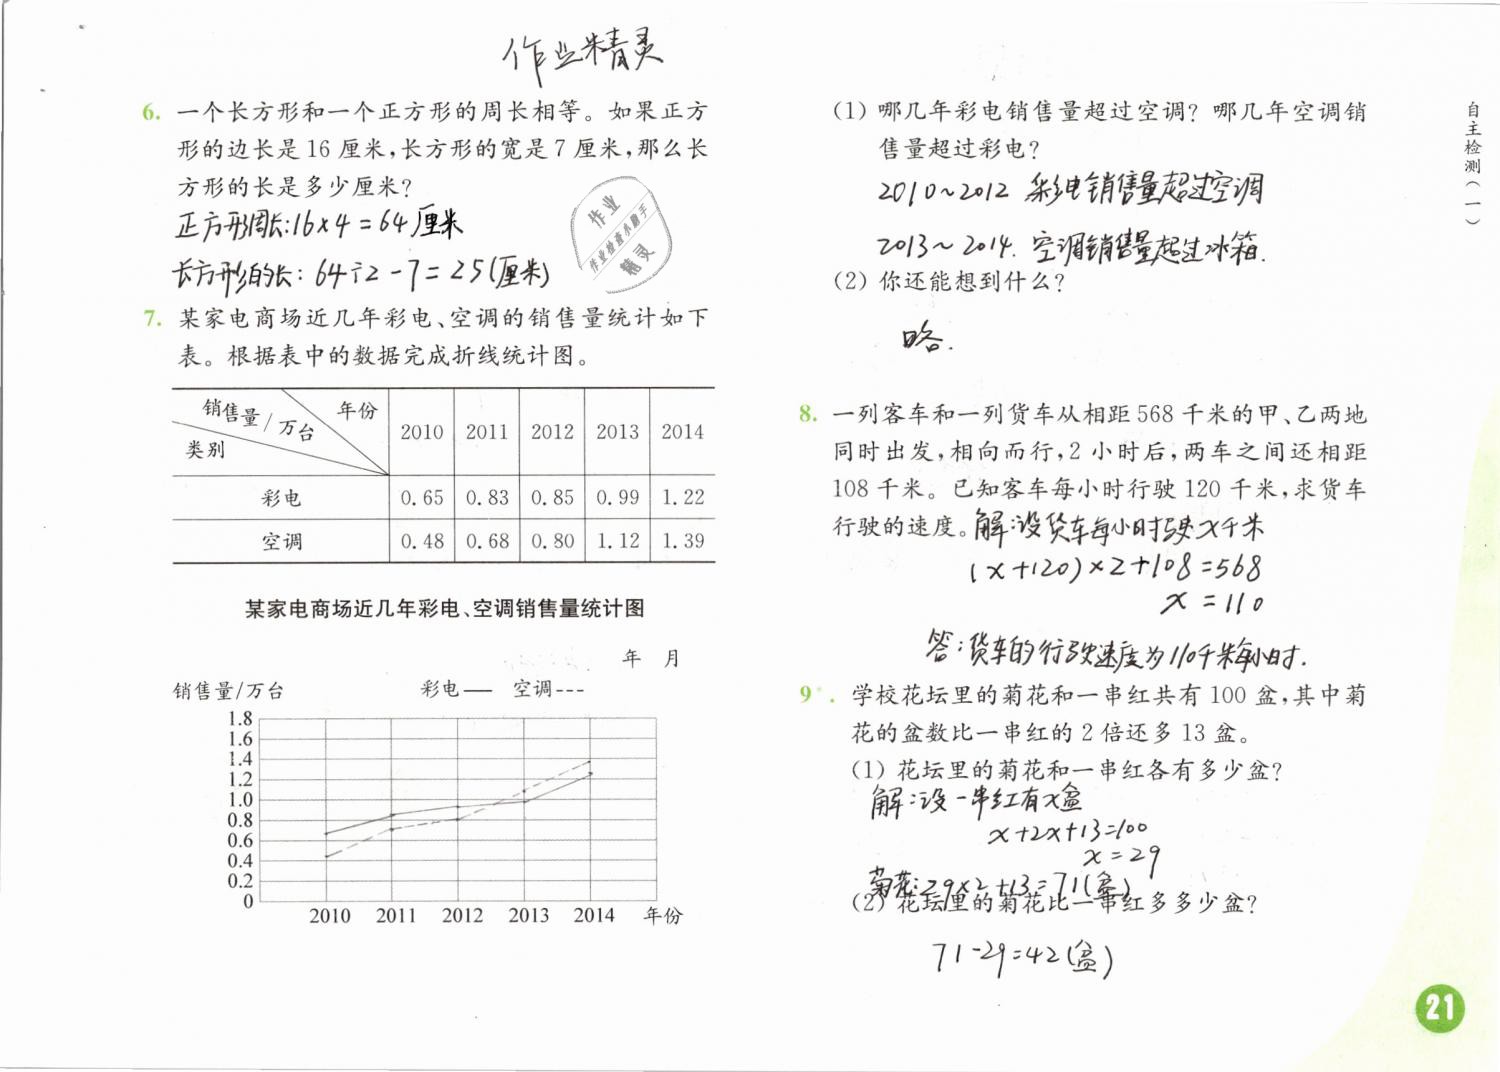 作业精灵
6. 一个长方形和一个正方形的周长相等。如果正方
形的边长是16厘米,长方形的宽是7厘米,那么长
方形的长是多少厘米?
正方形周长:16×4=64厘米
长方形的长:64÷2-7=25(厘米)
作业
作业检查小助手
精灵
7. 某家电商场近几年彩电、空调的销售量统计如下
表。根据表中的数据完成折线统计图。
销售量/万台 年份
类别
2010 2011 2012 2013 2014
彩电 0.65 0.83 0.85 0.99 1.22
空调 0.48 0.68 0.80 1.12 1.39
某家电商场近几年彩电、空调销售量统计图
年 月
销售量/万台 彩电— 空调---
1.8
1.6
1.4
1.2
1.0
0.8
0.6
0.4
0.2
0
2010 2011 2012 2013 2014 年份
(1) 哪几年彩电销售量超过空调?哪几年空调销
售量超过彩电?
2010~2012 彩电销售量超过空调
2013~2014. 空调销售量超过冰箱.
(2) 你还能想到什么?
略.
8. 一列客车和一列货车从相距568千米的甲、乙两地
同时出发,相向而行,2小时后,两车之间还相距
108千米。已知客车每小时行驶120千米,求货车
行驶的速度。解:设货车每小时行驶x千米
(x+120)×2+108=568
x=110
答:货车的行驶速度为110千米每小时.
9*. 学校花坛里的菊花和一串红共有100盆,其中菊
花的盆数比一串红的2倍还多13盆。
(1) 花坛里的菊花和一串红各有多少盆?
解:设一串红有x盆
x+2x+13=100
x=29
菊花:29×2+13=71(盆)
(2) 花坛里的菊花比一串红多多少盆?
71-29=42(盆)
自主检测(一)
21